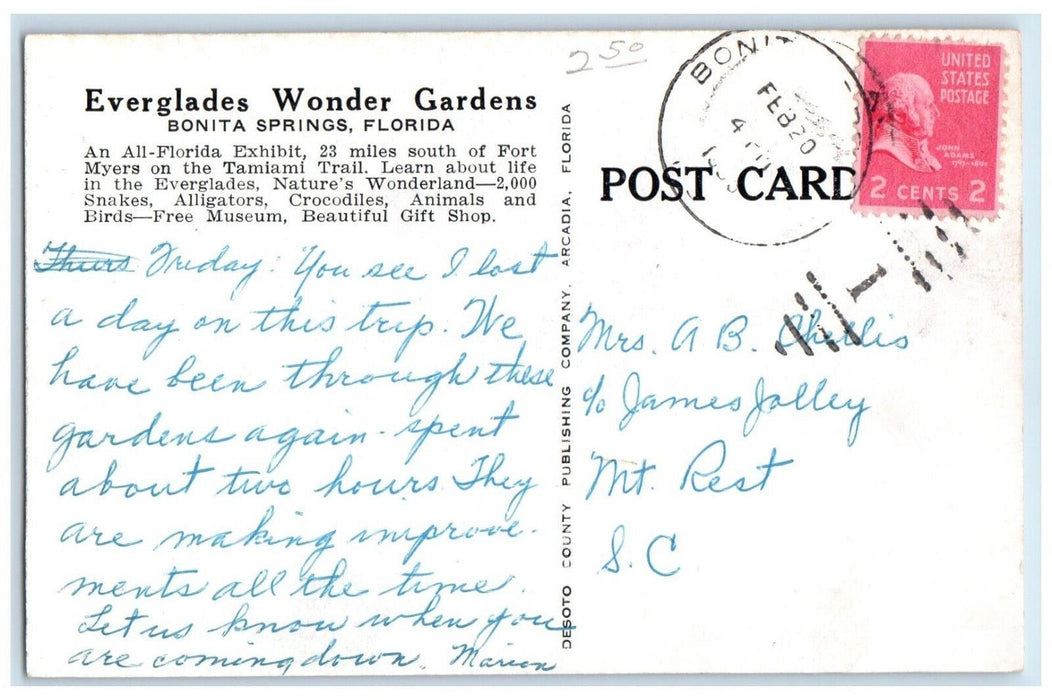 2 50
Everglades Wonder Gardens
BONITA SPRINGS, FLORIDA
An All-Florida Exhibit, 23 miles south of Fort
Myers on the Tamiami Trail. Learn about life
in the Everglades, Nature's Wonderland—2,000
Snakes, Alligators, Crocodiles, Animals and
Birds—Free Museum, Beautiful Gift Shop.
Thurs Friday: You see I lost
a day on this trip. We
have been through these
gardens again - spent
about two hours. They
are making improve-
ments all the time.
Let us know when you
are coming down. Marion
DESOTO COUNTY PUBLISHING COMPANY, ARCADIA, FLORIDA
POST CARD
BONIT
FEB 20
4 PM
UNITED
STATES
POSTAGE
JOHN
ADAMS
2 CENTS 2
1
Mrs. A B. Chellis
c/o James Jolley
Mt. Rest
S. C